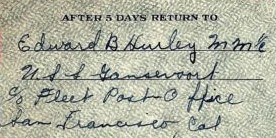 AFTER 5 DAYS RETURN TO
Edward B Hurley M M 1/c
U S S Gansevoort
c/o Fleet Post O ffice
San Francisco Cal